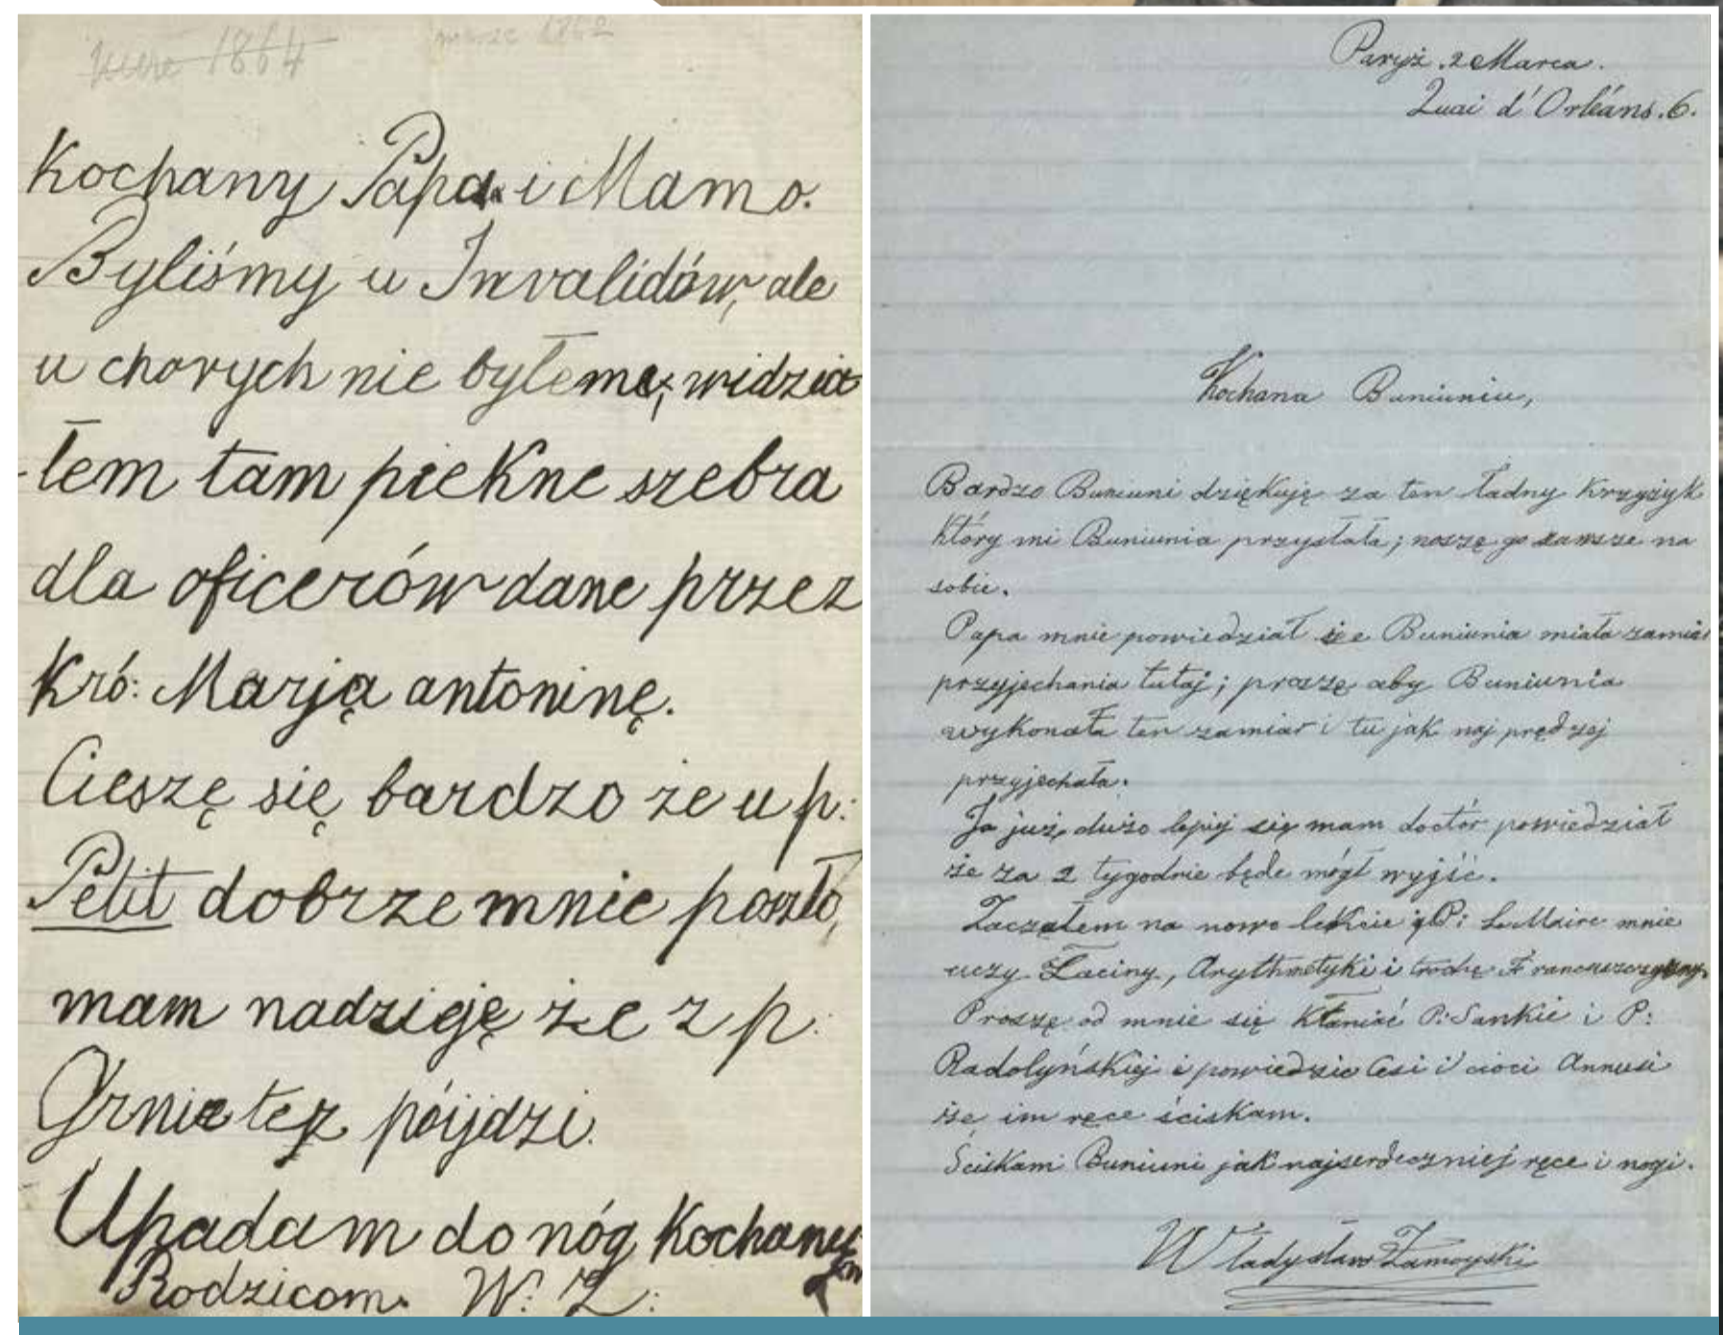 1864
marzec 1862
Kochany Papa i Mamo.
Byliśmy u Inwalidów, ale
u chorych nie byłem, widzia
-łem tam piekne szebra
dla oficerów dane przez
Kró: Marją antoninę.
Cieszę się bardzo że u p:
Petit dobrze mnie poszło,
mam nadzieję że z p:
też pójdzi.
Upadam do nóg Kochanym
Rodzicom. W. Z:
Paryż. 2 Marca.
Quai d'Orléans. 6.
Kochana Buniuniu,
Bardzo Buniuni dziękuję za ten ładny Krzyżyk
który mi Buniunia przysłała; noszę go zawsze na
sobie.
Papa mnie powiedział że Buniunia miała zamiar
przyjechania tutaj; proszę aby Buniunia
wykonała ten zamiar i tu jak naj prędzej
przyjechała.
Ja już dużo lepiej się mam doctór powiedział
że za 2 tygodnie będe mógł wyjść.
Zacząłem na nowo lekcie P: LeMaire mnie
uczy Łaciny, Arythmetyki i trochę Francuszczyzny.
Proszę od mnie się kłaniać P: Sankie i P:
Radolyńskiej i powiedzie Cesi i cioci Annusi
że im ręce ściskam.
Ściskam Buniuni jak najserdeczniej ręce i nogi.
Władysław Zamoyski